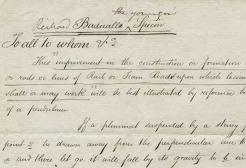 the younger
Richard Badnall's Specn
To all to whom &c
This improvement in the construction or formation o
or rods or lines of Rail or Tram Roads upon which locom
shall or may work will be best illustrated by reference to
of a pendulum
If a plummet suspended by a string
point be drawn away from the perpendicular line t
a and there let go it will fall by its gravity to b